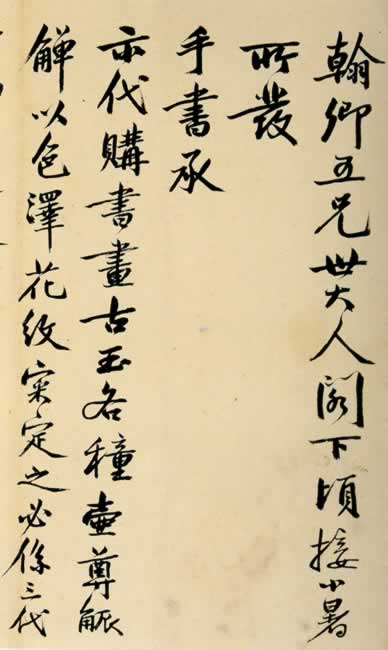 翰卿五兄世大人閣下頃接小暑
所發
手書承
示代購書畫古玉各種壺尊觚
觶以色澤花紋宋定之必係三代